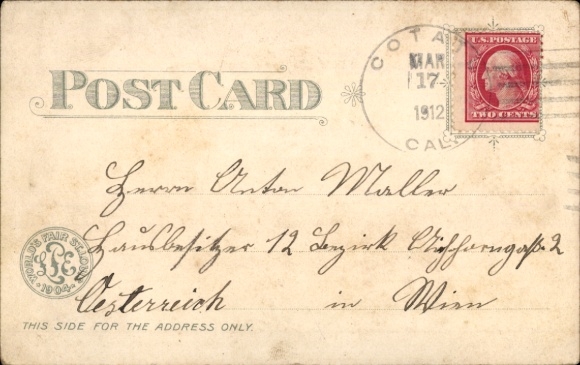 POST CARD
COTA
MAR
17
1912
CAL.
U.S. POSTAGE
TWO CENTS
Herrn Anton Maller
Hausbesitzer 12 Bezirk Aichhorngaße 2
WORLD'S FAIR ST. LOUIS
1904
Oesterreich in Wien
THIS SIDE FOR THE ADDRESS ONLY.